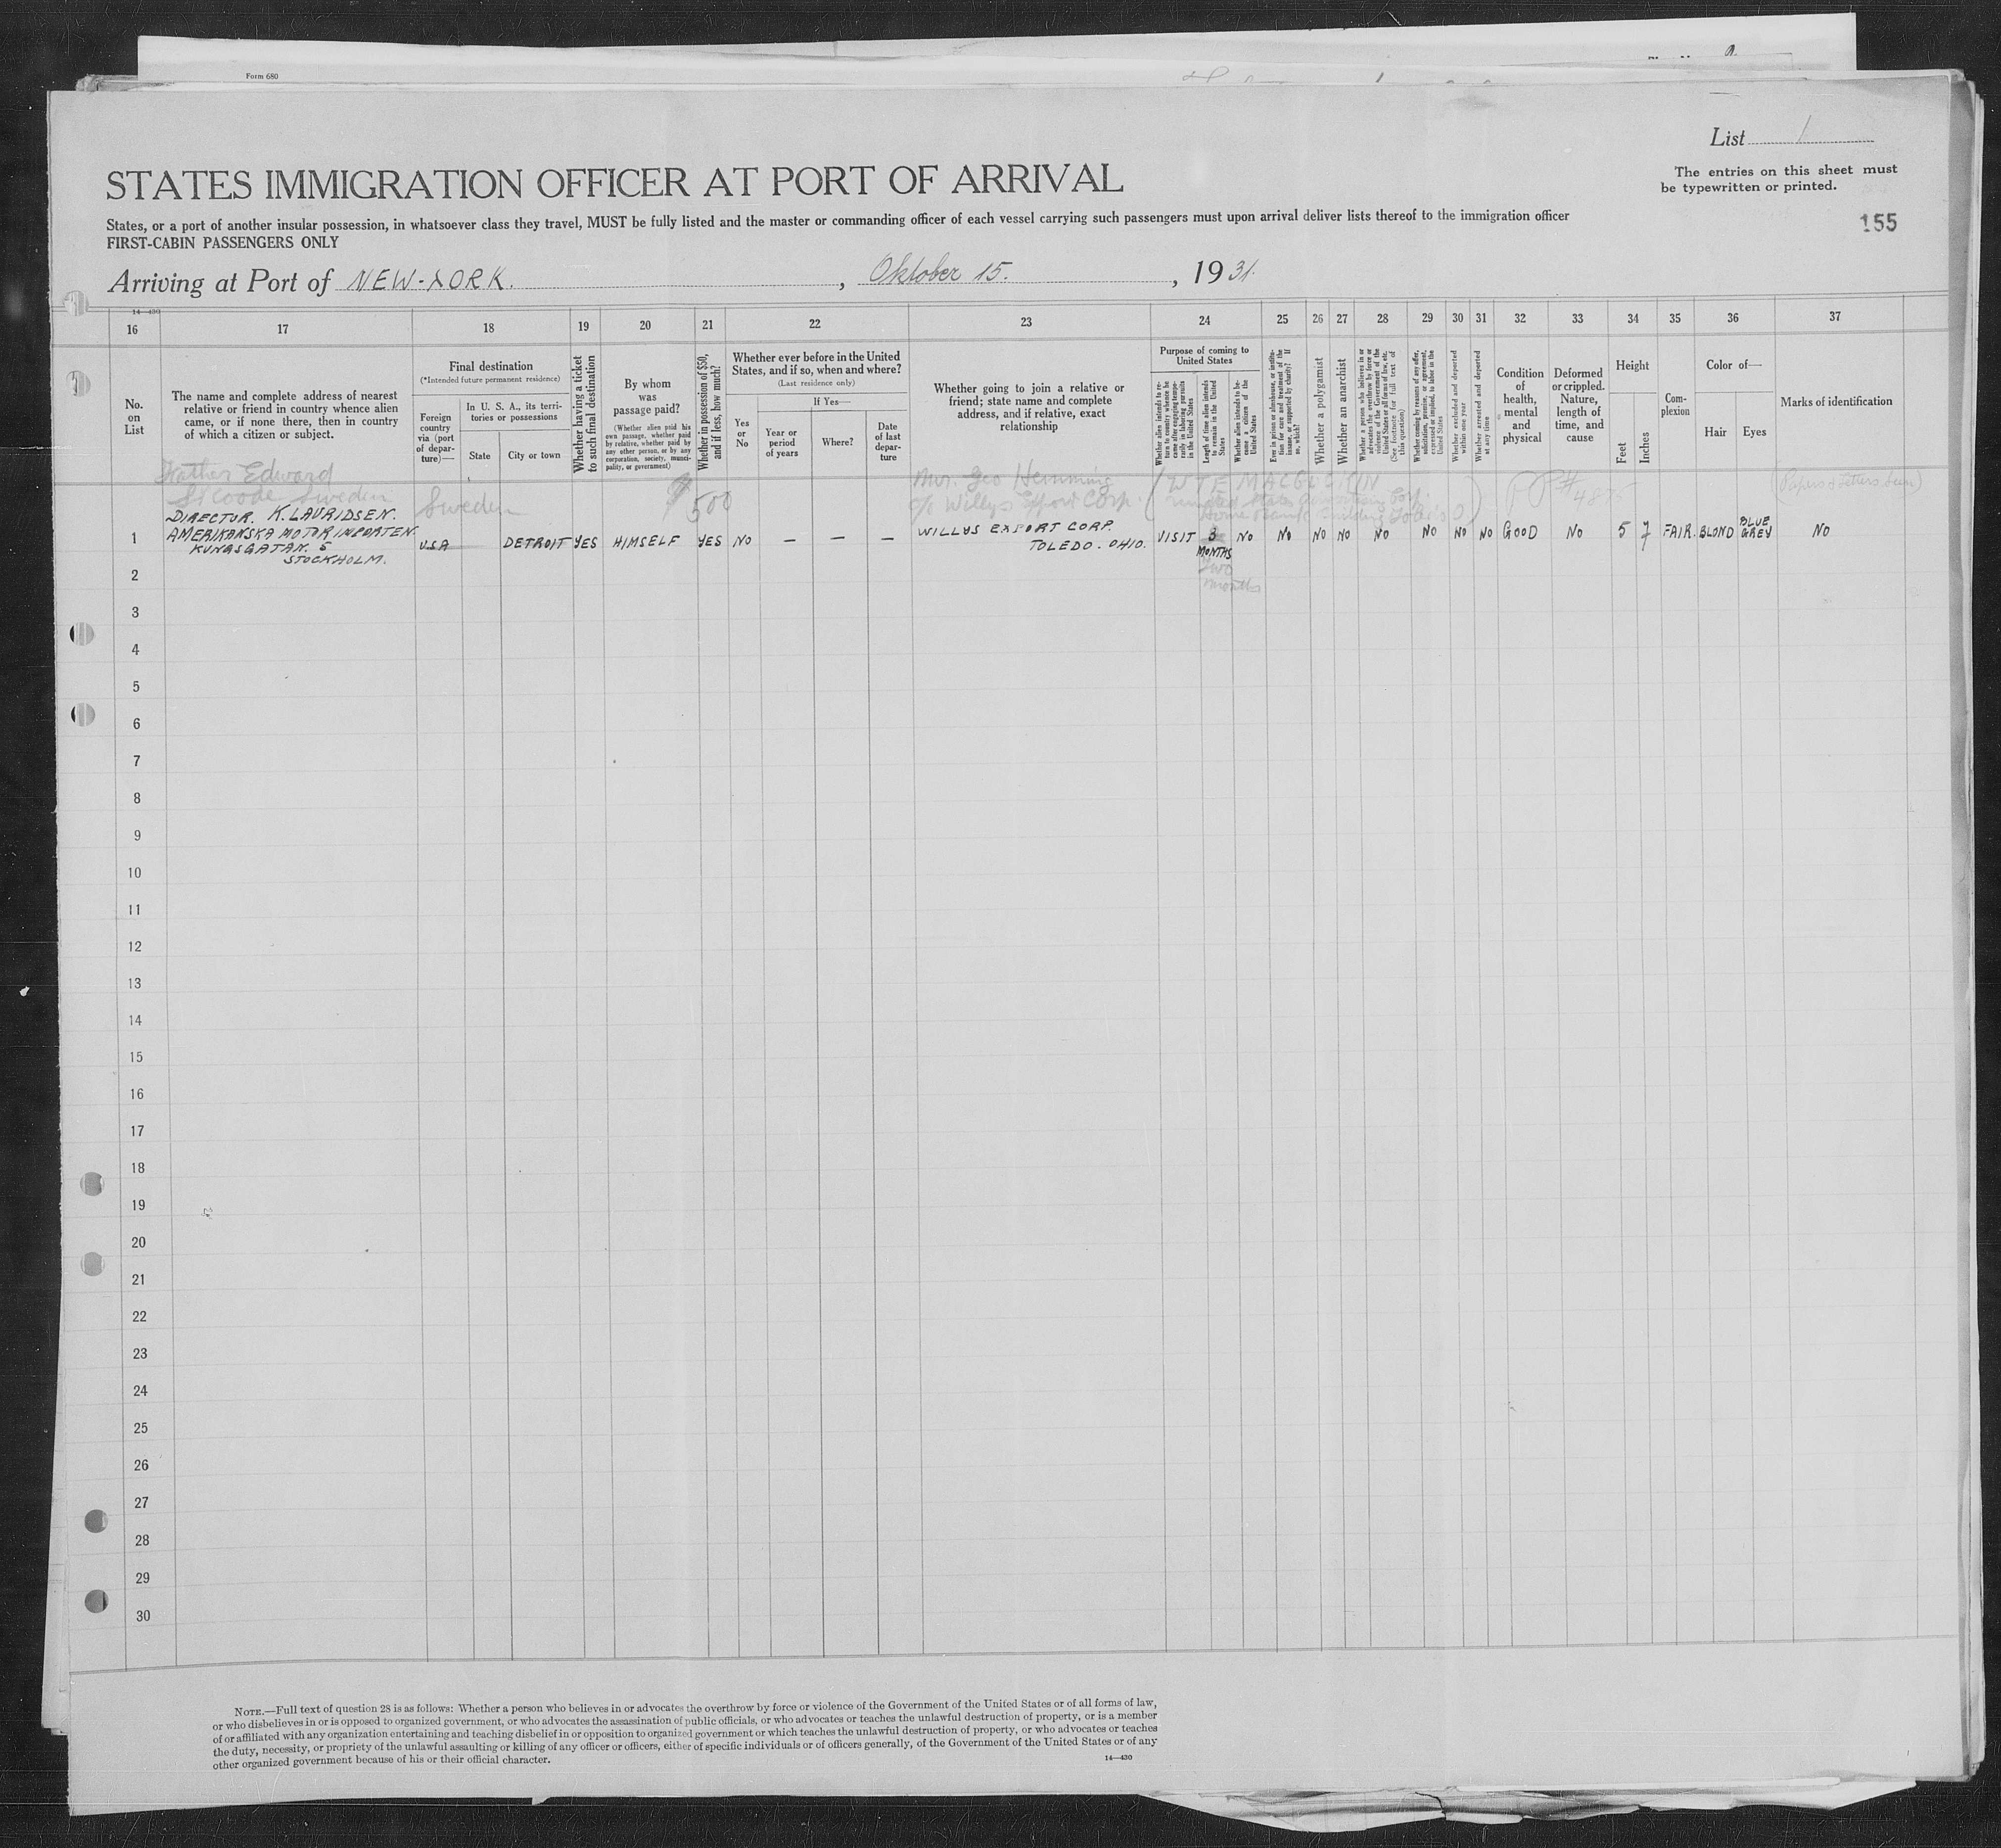 Form 680
List 1
The entries on this sheet must
be typewritten or printed.
STATES IMMIGRATION OFFICER AT PORT OF ARRIVAL
States, or a port of another insular possession, in whatsoever class they travel, MUST be fully listed and the master or commanding officer of each vessel carrying such passengers must upon arrival deliver lists thereof to the immigration officer
155
FIRST-CABIN PASSENGERS ONLY
Arriving at Port of NEW-YORK. , Oktober 15. , 1931.
14—430
16 17 18 19 20 21 22 23 24 25 26 27 28 29 30 31 32 33 34 35 36 37
No.
on
List
The name and complete address of nearest
relative or friend in country whence alien
came, or if none there, then in country
of which a citizen or subject.
Final destination
(*Intended future permanent residence)
Foreign
country
via (port
of depar-
ture)—
In U. S. A., its terri-
tories or possessions
State
City or town
Whether having a ticket
to such final destination
By whom
was
passage paid?
(Whether alien paid his
own passage, whether paid
by relative, whether paid by
any other person, or by any
corporation, society, munici-
pality, or government)
Whether in possession of $50,
and if less, how much?
Whether ever before in the United
States, and if so, when and where?
(Last residence only)
If Yes—
Yes
or
No
Year or
period
of years
Where?
Date
of last
depar-
ture
Whether going to join a relative or
friend; state name and complete
address, and if relative, exact
relationship
Purpose of coming to
United States
Whether alien intends to re-
turn to country whence he
came after engaging tempo-
rarily in laboring pursuits
in the United States
Length of time alien intends
to remain in the United
States
Whether alien intends to be-
come a citizen of the
United States
Ever in prison or almshouse, or institu-
tion for care and treatment of the
insane, or supported by charity? If
so, which?
Whether a polygamist
Whether an anarchist
Whether a person who believes in or
advocates the overthrow by force or
violence of the Government of the
United States or all forms of law, etc.
(See footnote for full text of
this question)
Whether coming by reasons of any offer,
solicitation, promise, or agreement,
expressed or implied, to labor in the
United States
Whether excluded and deported
within one year
Whether arrested and deported
at any time
Condition
of
health,
mental
and
physical
Deformed
or crippled.
Nature,
length of
time, and
cause
Height
Feet
Inches
Com-
plexion
Color of—
Hair
Eyes
Marks of identification
Father Edward
Sweden
Sweden
$ 500
Mr. Geo Hemming
c/o Willys Export Corp.
PP#
Papers & Letters Seen)
DIRECTOR. K. LAURIDSEN.
AMERIKANSKA MOTORIMPORTEN
KUNGSGATAN. 5
STOCKHOLM.
1 U.S.A DETROIT YES HIMSELF YES NO — — — WILLYS EXPORT CORP.
TOLEDO. OHIO.
VISIT 3 NO NO NO NO NO NO NO NO GOOD NO 5 7 FAIR. BLOND BLUE
GREY NO
MONTHS
two
months
2
3
4
5
6
7
8
9
10
11
12
13
14
15
16
17
18
19
20
21
22
23
24
25
26
27
28
29
30
NOTE.—Full text of question 28 is as follows: Whether a person who believes in or advocates the overthrow by force or violence of the Government of the United States or of all forms of law,
or who disbelieves in or is opposed to organized government, or who advocates the assassination of public officials, or who advocates or teaches the unlawful destruction of property, or is a member
of or affiliated with any organization entertaining and teaching disbelief in or opposition to organized government or which teaches the unlawful destruction of property, or who advocates or teaches
the duty, necessity, or propriety of the unlawful assaulting or killing of any officer or officers, either of specific individuals or of officers generally, of the Government of the United States or of any
other organized government because of his or their official character.
14—430